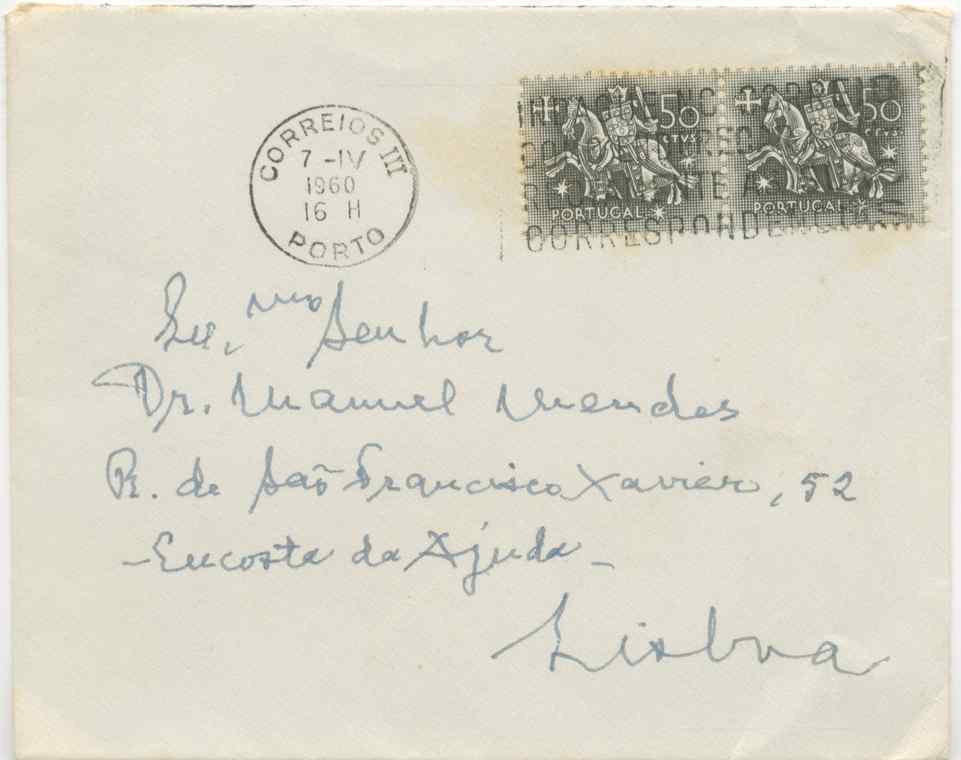 CORREIOS III
7 -IV
1960
16 H
PORTO
50 50
CTVS CTVS
PORTUGAL PORTUGAL
CORREIO
CORRESPONDENCIAS
Ex.mo Senhor
Dr. Manuel Mendes
R. de São Francisco Xavier, 52
- Encosta da Ajuda -
Lisboa